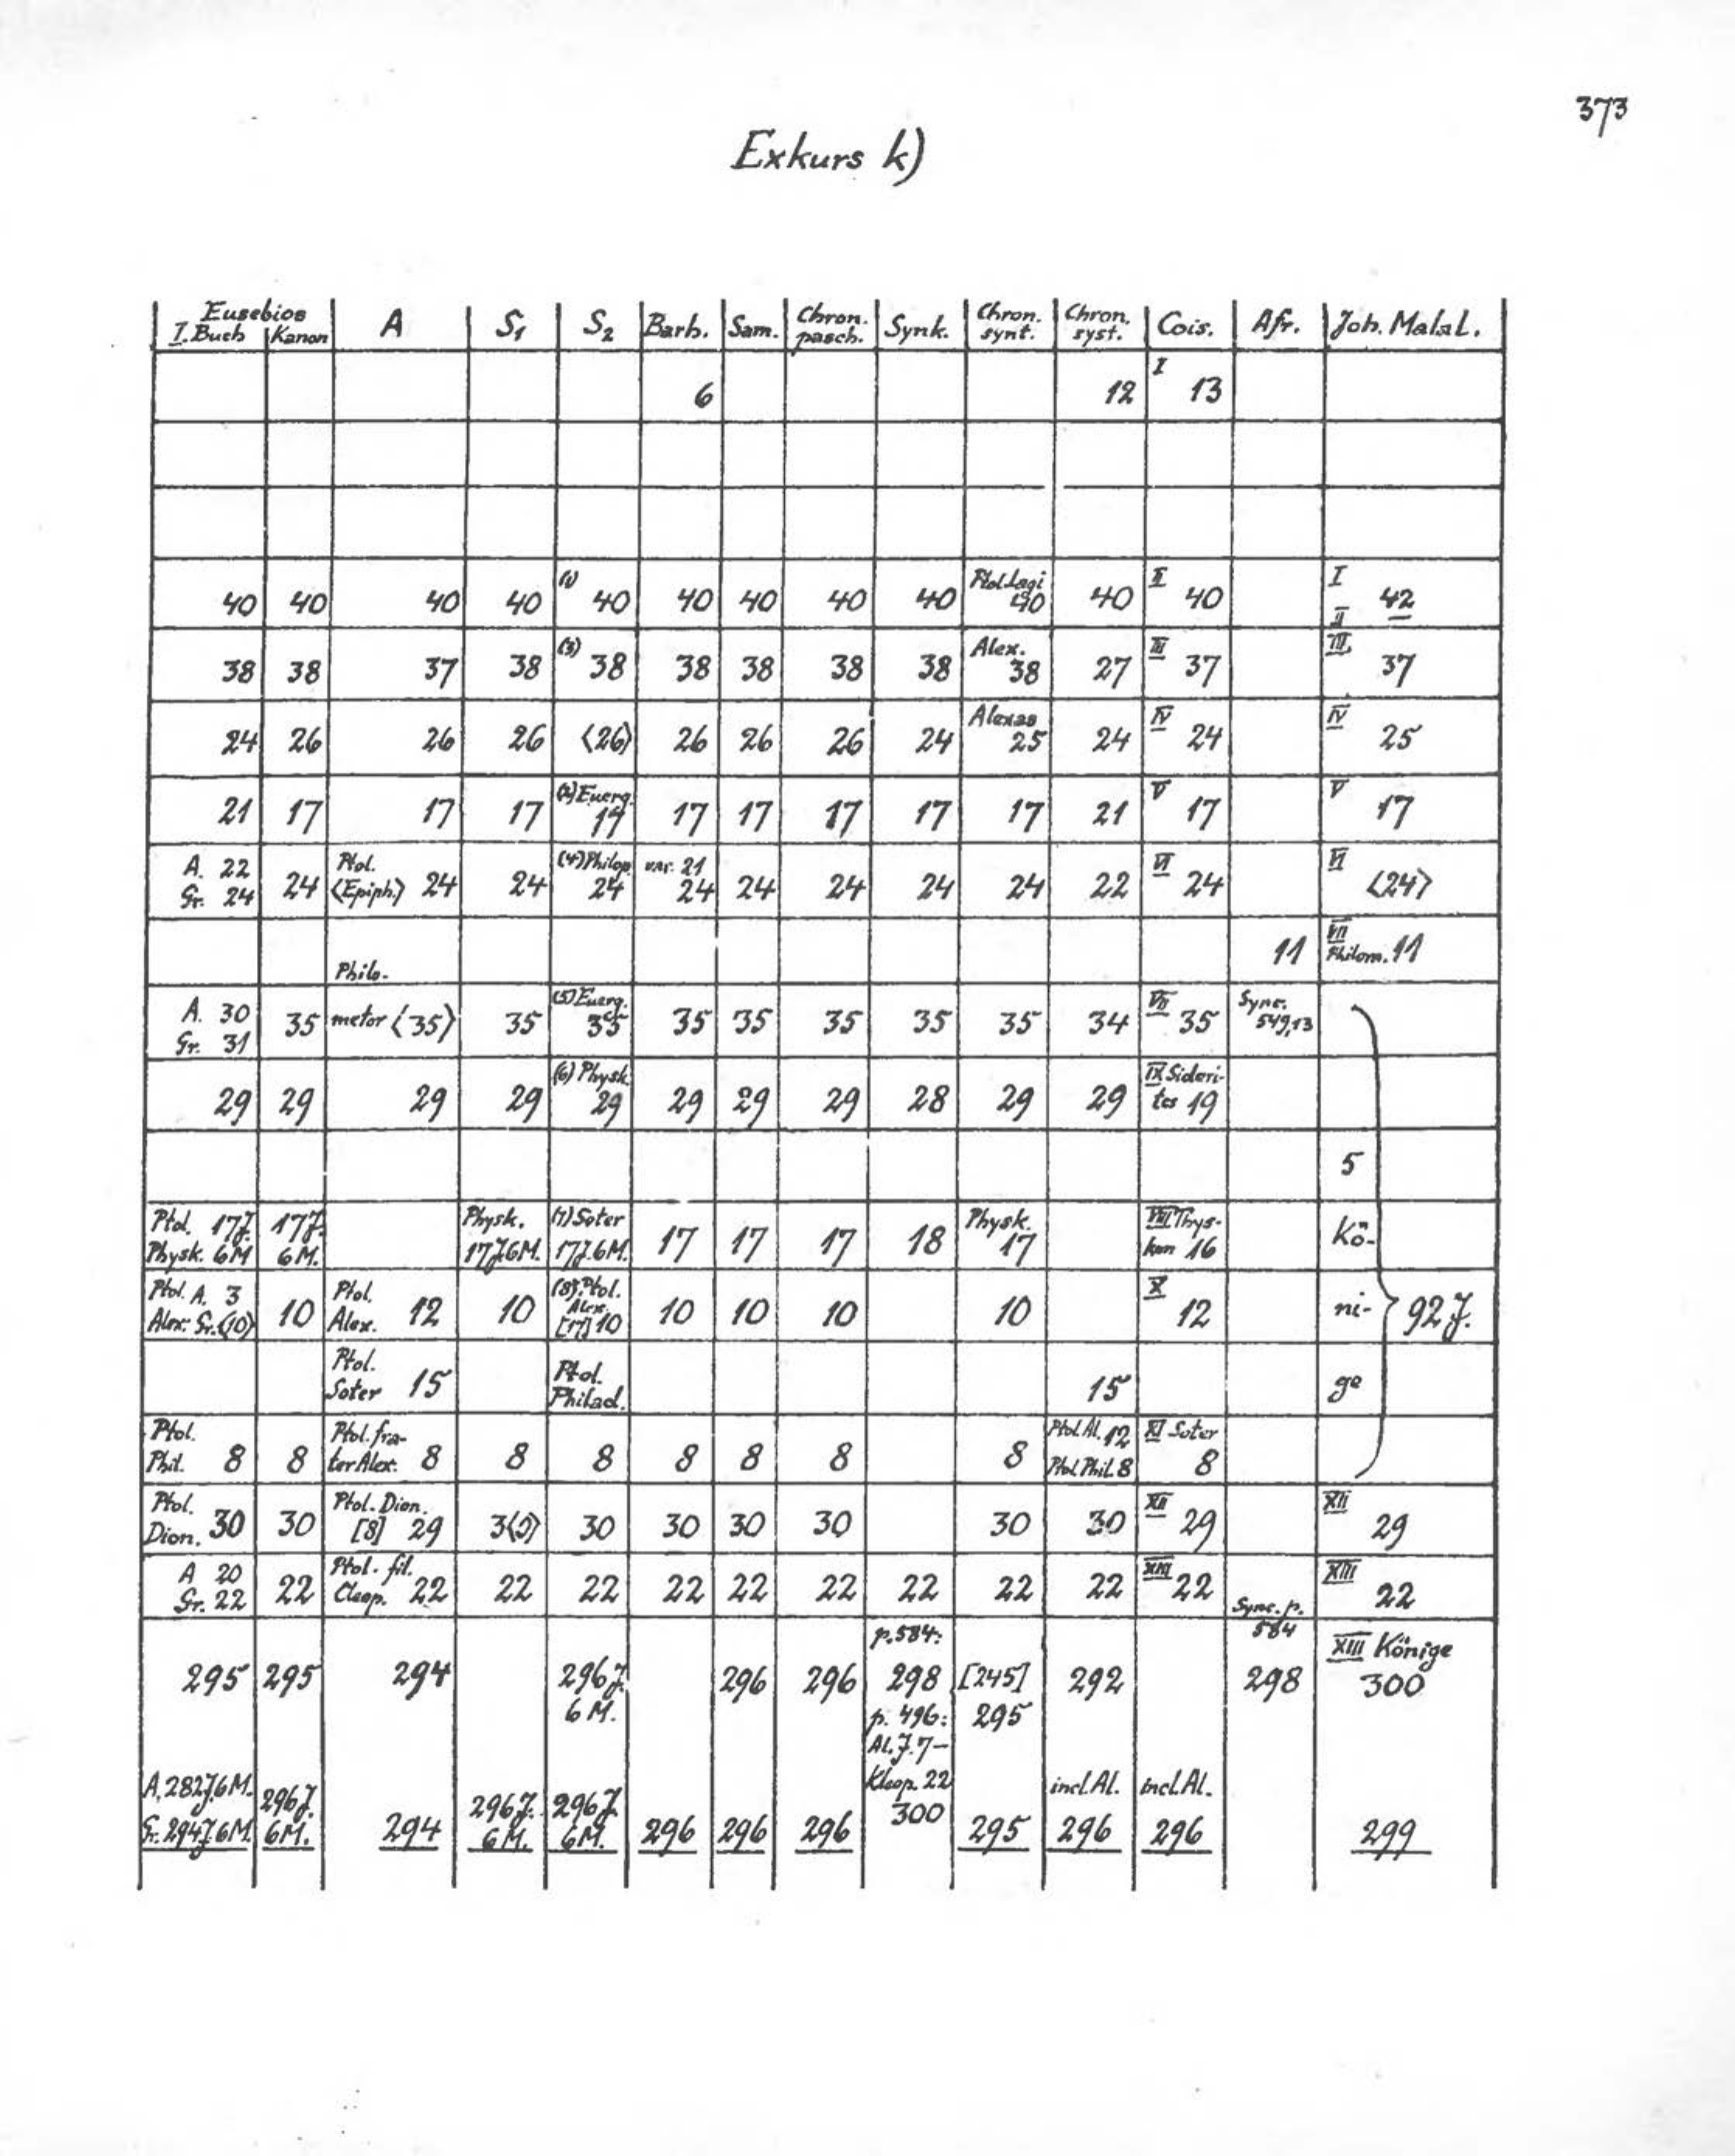 373
Exkurs k)
Eusebios
I. Buch Kanon A S1 S2 Barb. Sam. Chron. pasch. Synk. Chron. synt. Chron. syst. Cois. Afr. Joh. Malal.
6 12 I 13
40 40 40 40 (1) 40 40 40 40 40 Ptol. Lagi 40 40 II 40 I II 42
38 38 37 38 (3) 38 38 38 38 38 Alex. 38 27 III 37 III. 37
24 26 26 26 <26> 26 26 26 24 Alexas 25 24 IV 24 IV 25
21 17 17 17 (2) Euerg. 17 17 17 17 17 17 21 V 17 V 17
A. 22 Gr. 24 24 Ptol. <Epiph.> 24 24 (4) Philop. 24 var. 21 24 24 24 24 24 22 VI 24 VI <24>
Philo- 11 VII Philom. 11
A. 30 Gr. 31 35 metor <35> 35 (5) Euerg. 35 35 35 35 35 35 34 VII 35 Sync. 549,13
29 29 29 29 (6) Physk. 29 29 29 29 28 29 29 IX Sideri- tes 19
5
Ptol. 17 J. Physk. 6 M 17 J. 6 M. Physk. 17 J. 6 M. (7) Soter 17 J. 6 M. 17 17 17 18 Physk. 17 VIII Thys- kon 16 Kö-
Ptol. A. 3 Alex. Gr. <10> 10 Ptol. Alex. 12 10 (8) Ptol. Alex. [17] 10 10 10 10 10 X 12 ni- 92 J.
Ptol. Soter 15 Ptol. Philad. 15 ge
Ptol. Phil. 8 8 Ptol. fra- ter Alex. 8 8 8 8 8 8 8 Ptol. Al. 12 Ptol. Phil. 8 XI Soter 8
Ptol. Dion. 30 30 Ptol. Dion. [8] 29 3<0> 30 30 30 30 30 30 XII 29 XII 29
A 20 Gr. 22 22 Ptol. fil. Cleop. 22 22 22 22 22 22 22 22 22 XIII 22 XIII 22
295 295 294 296 J. 6 M. 296 296 p. 584: 298 [245] 295 292 Sync. p. 584 298 XIII Könige 300
p. 496: Al. J. 7 – Kleop. 22 300
A. 282 J. 6 M. Gr. 294 J. 6 M. 296 J. 6 M. 294 296 J. 6 M. 296 J. 6 M. 296 296 296 295 incl. Al. 296 incl. Al. 296 299